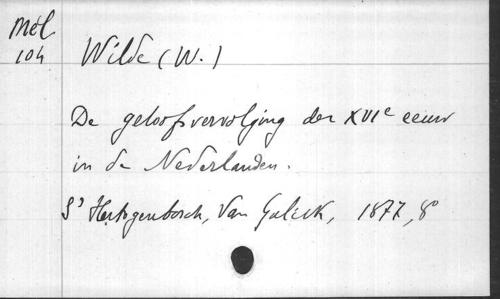 Mél
104
Wilde (W.)
De geloofsvervolging der XVIe eeuw
in de Nederlanden.
S' Hertogenbosch, Van Gulick, 1877, 8°